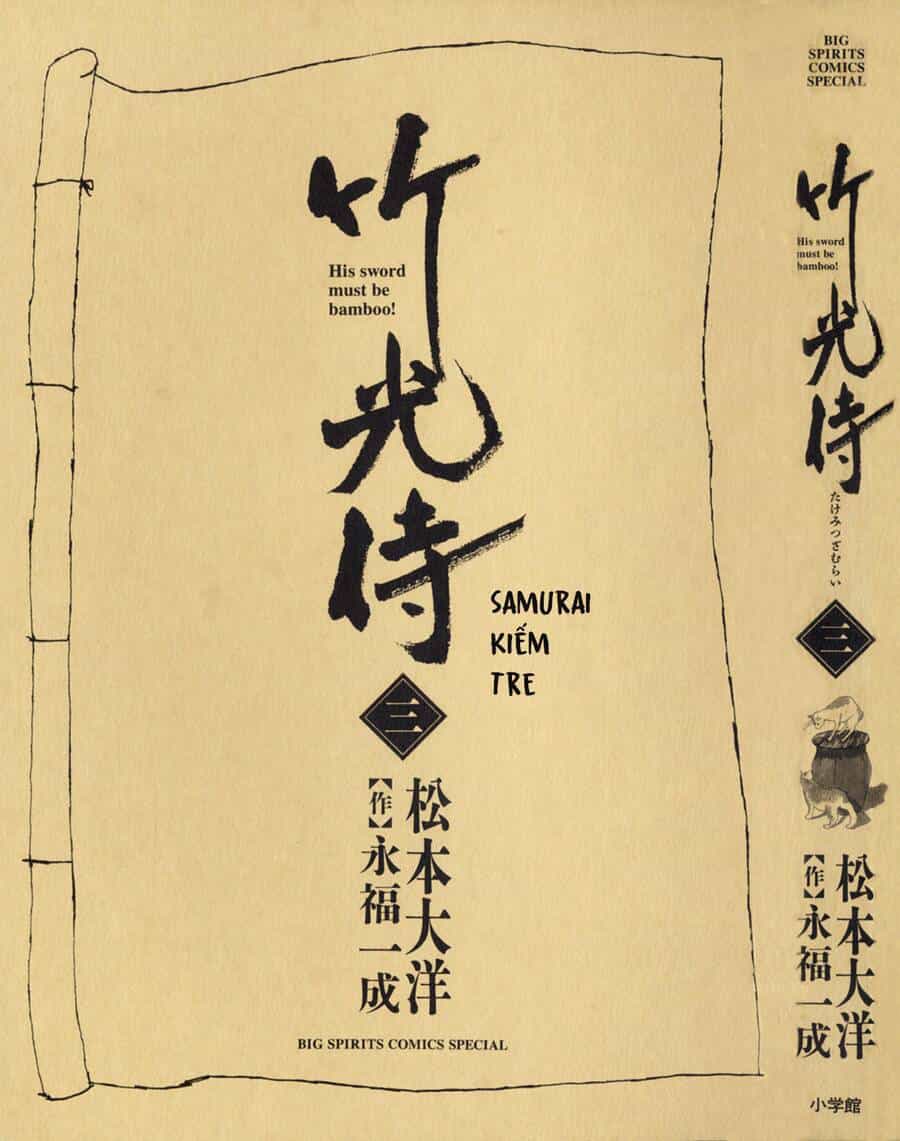 竹光侍
His sword
must be
bamboo!
SAMURAI
KIẾM
TRE
三
松本大洋
【作】永福一成
BIG SPIRITS COMICS SPECIAL
BIG
SPIRITS
COMICS
SPECIAL
竹光侍
His sword
must be
bamboo!
たけみつざむらい
三
松本大洋
【作】永福一成
小学館